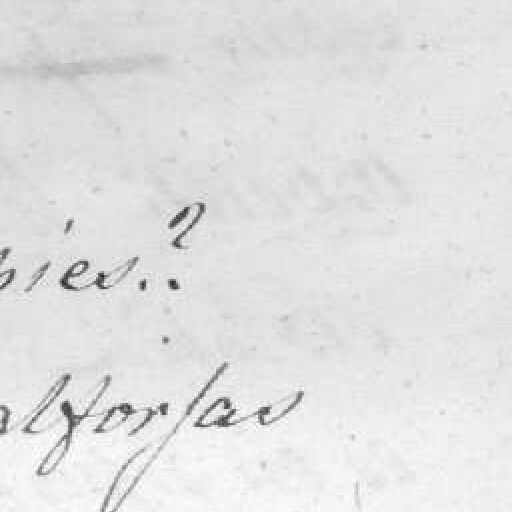 pies.?
alforjas